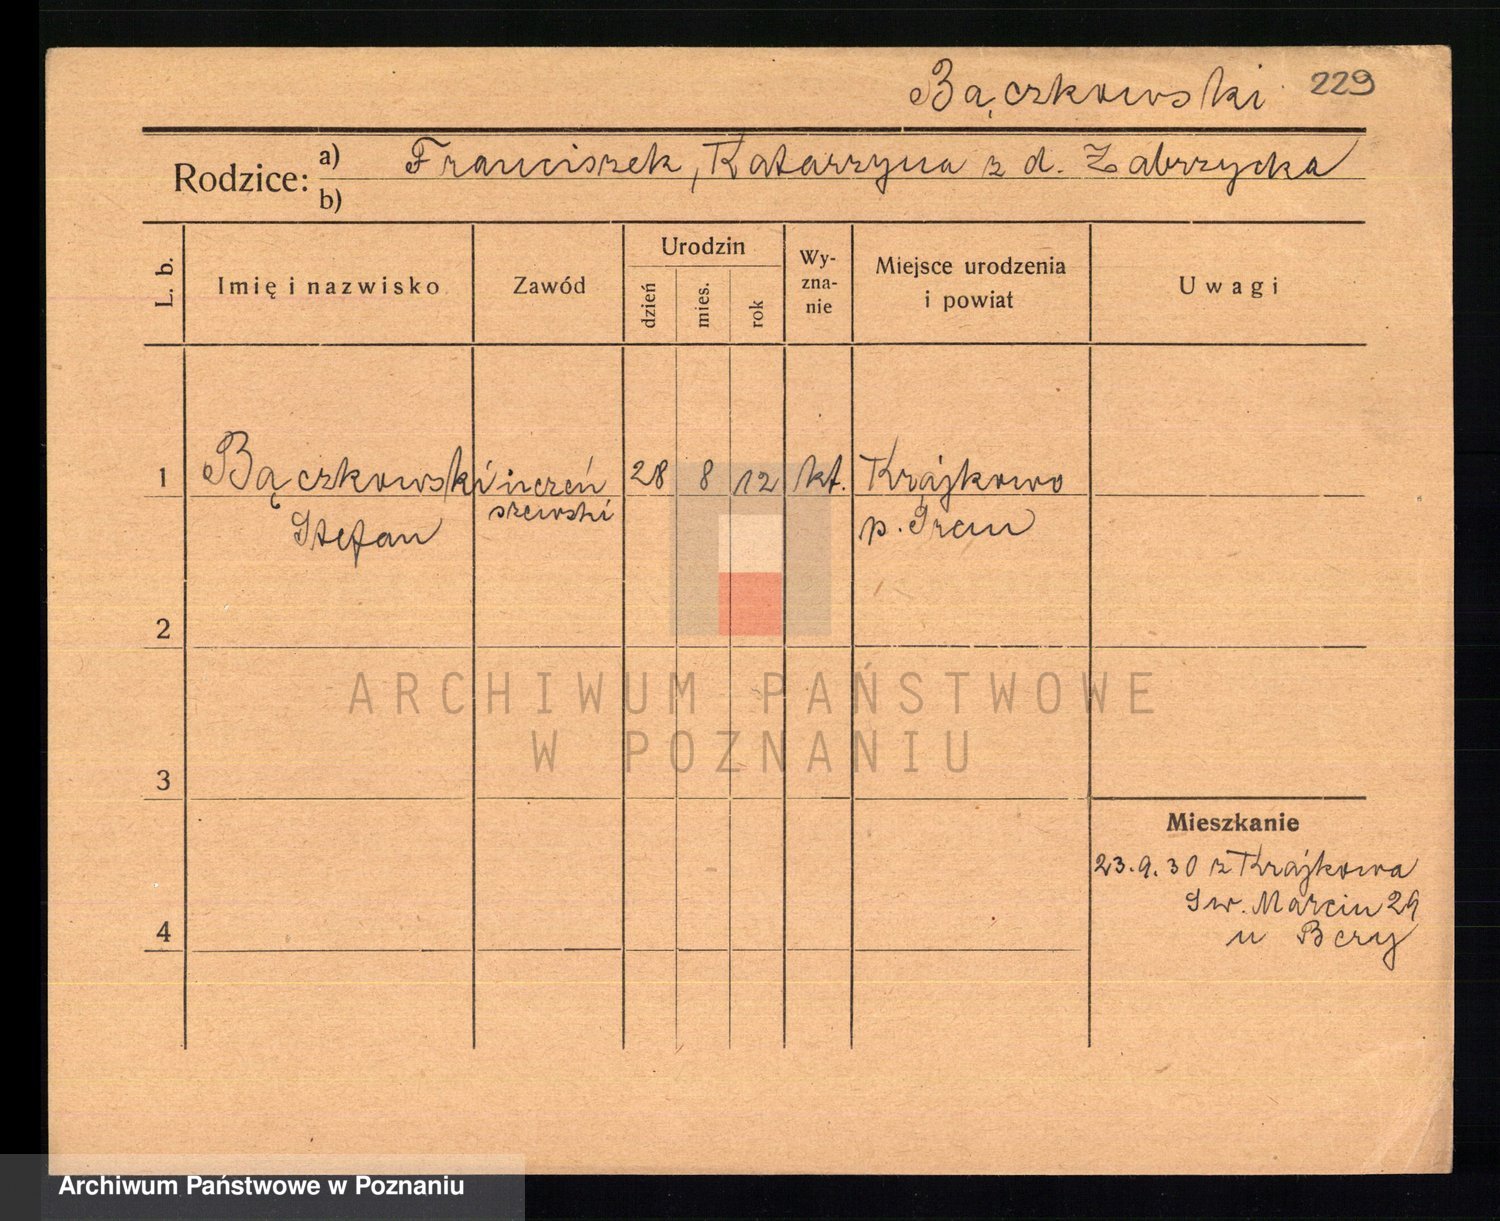 Bączkowski 229
Rodzice: a) Franciszek, Katarzyna z d. Zabrzycka
b)
L. b.
Imię i nazwisko
Zawód
Urodzin
dzień
mies.
rok
Wy-
zna-
nie
Miejsce urodzenia
i powiat
Uwagi
1 Bączkowski uczeń 28 8 12 kt. Krajkowo
szewski
Stefan p. Śrem
2
ARCHIWUM PAŃSTWOWE
W POZNANIU
3
Mieszkanie
23.9.30 z Krajkowa
Św. Marcin 29
4 u Bery
Archiwum Państwowe w Poznaniu